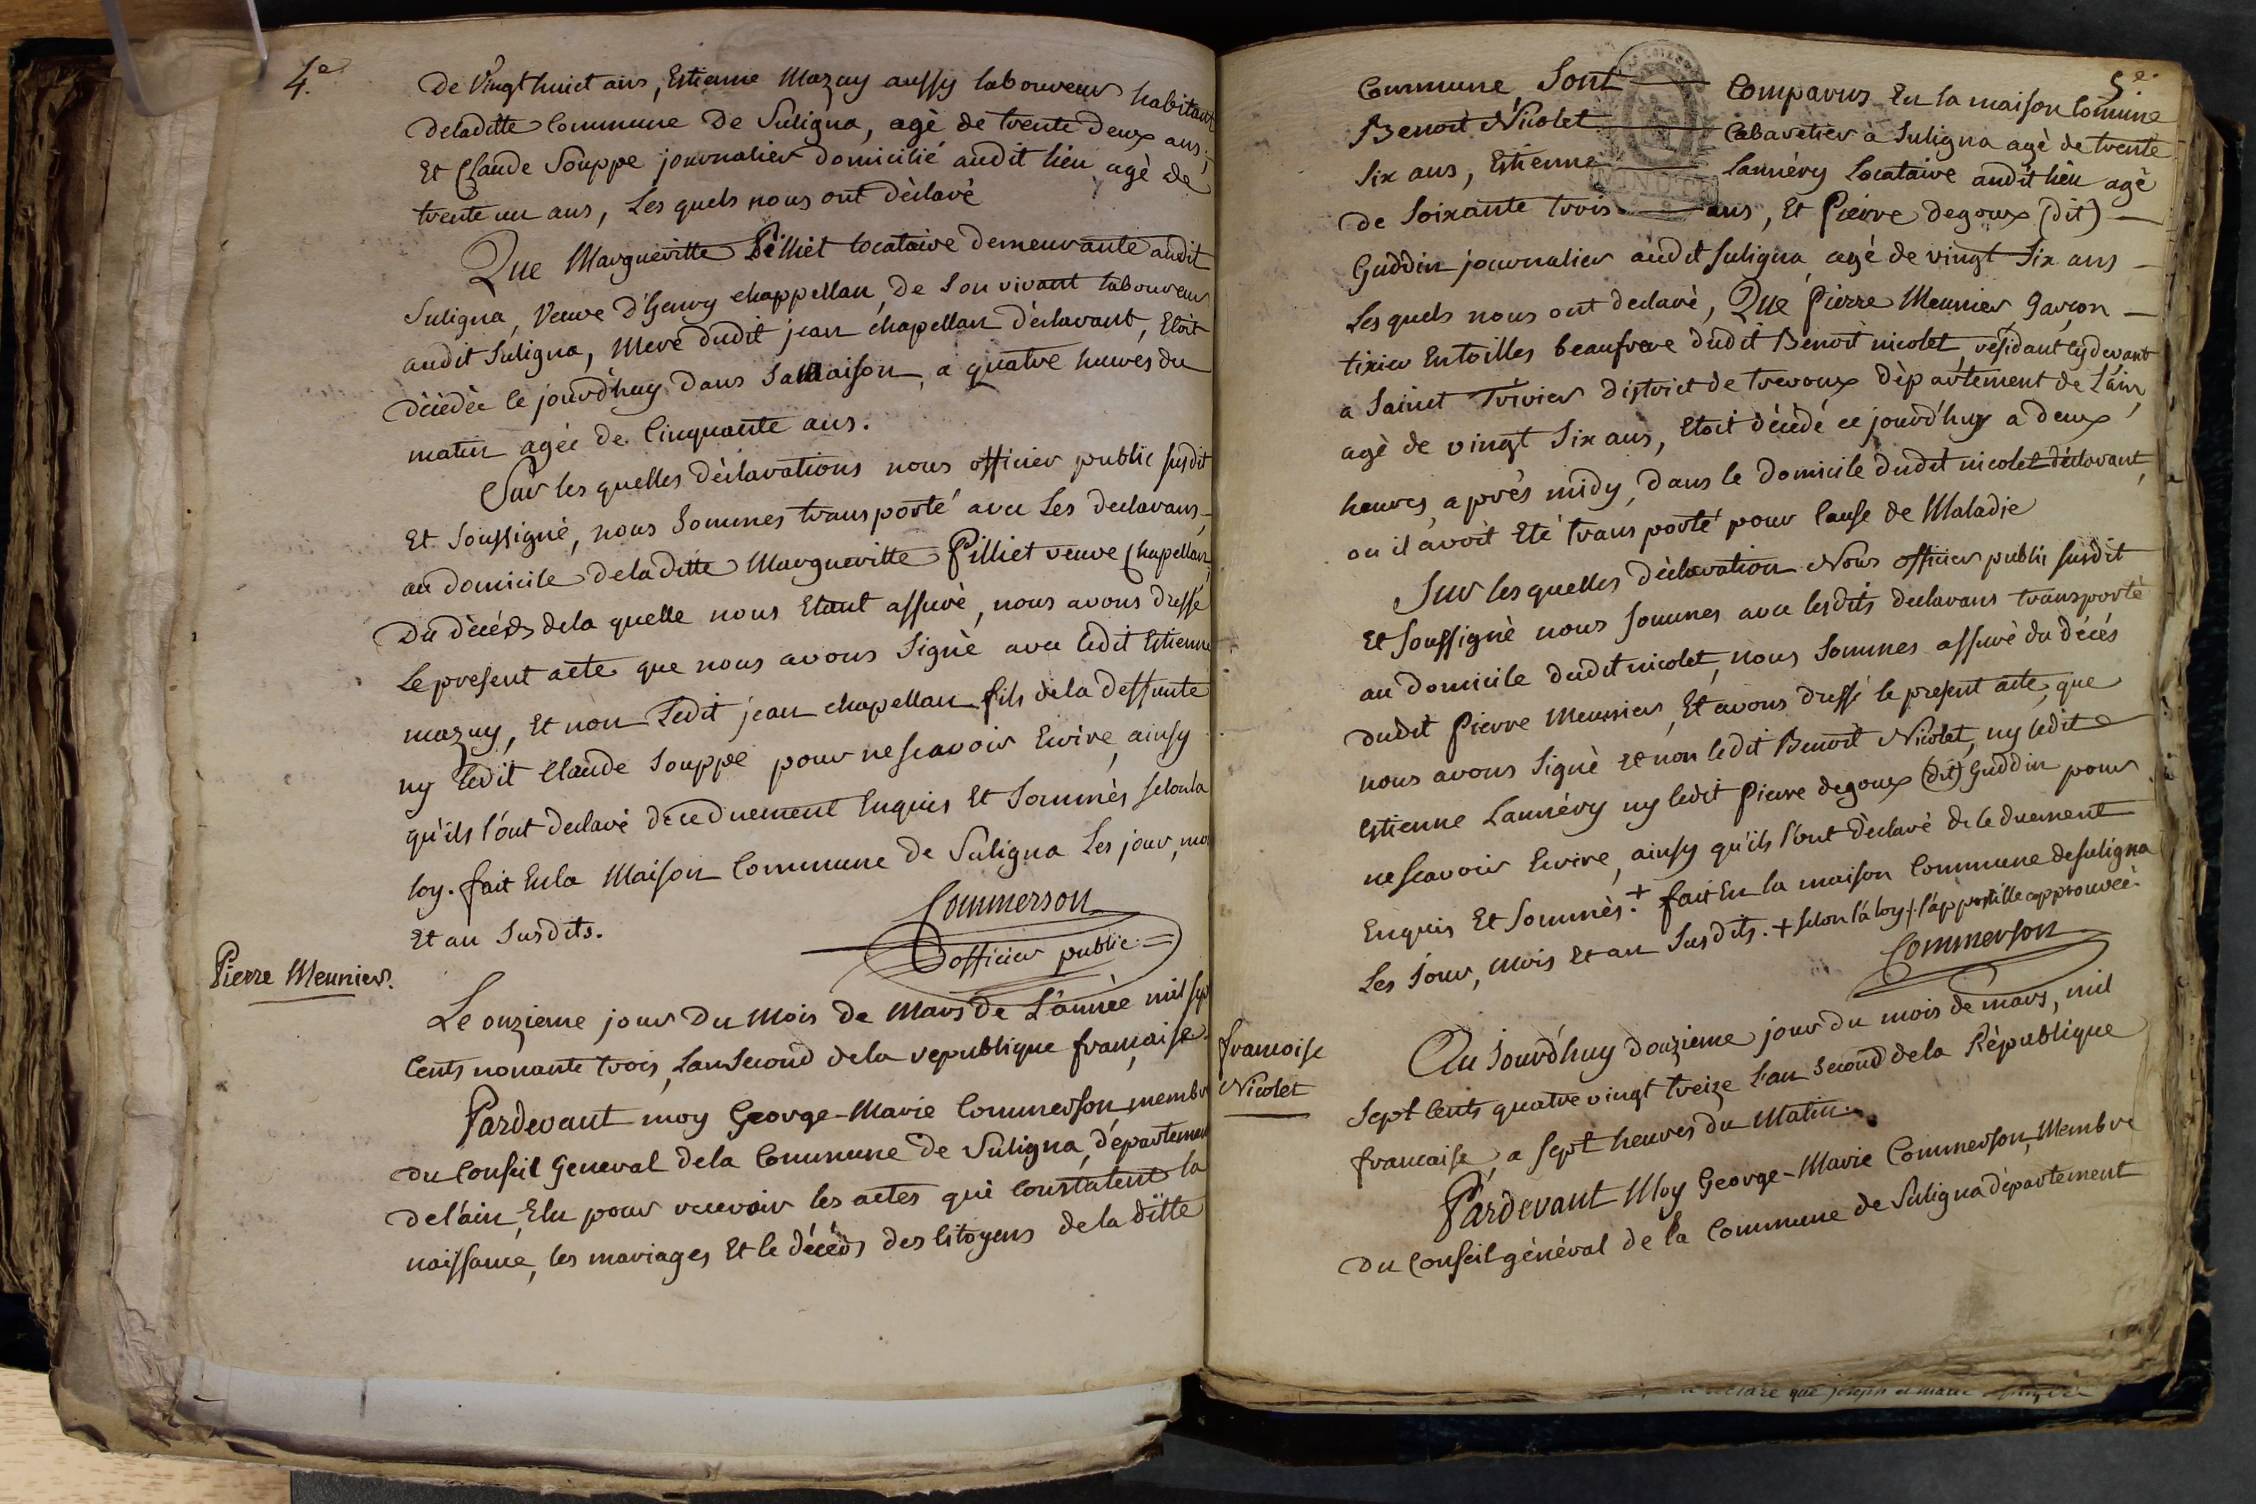 4.e
de vingt huict ans, Estienne Mazuy aussy laboureur habitant
de la ditte Commune de Suligna, agè de trente deux ans,
Et Claude Souppe journalier domicilié audit lieu agè de
trente un ans, Les quels nous ont dèclarè
Que Margueritte Pilliet locataire demeurante audit
Suligna, Veuve d'Henry chappellan, de son vivant laboureur
audit Suligna, Mere dudit jean chapellan dèclarant, Etoit
dècèdèe le jourd'huy dans sa Maison, a quatre heures du
matin agèe de Cinquante ans.
Sur les quelles dèclarations nous officier public susdit
Et soussignè, nous sommes transporté avec Les declarans,
au domicile de la ditte Margueritte Pilliet veuve Chapellan,
Du dècès de la quelle nous Etant assurè, nous avons dressé
Le present acte que nous avons Signè avec ledit Estienne
mazuy, Et non ledit jean chapellan fils de la deffunte
ny ledit Claude Souppe pour ne scavoir Ecrire, ainsy
qu'ils l'ont declaré de ce duement Enquis Et Sommès selon la
loy. fait En la Maison Commune de Suligna Les jour, moi
Et an Susdits.
Commerson
officier public
Pierre Meunier.
Le onzieme jour du Mois de Mars de L'annèe mil sept
Cents nonante trois, L'an Second de la republique francaise.
Pardevant moy George-Marie Commerson membre
du Conseil General de la Commune de Suligna, département
de l'ain, Elu pour recevoir les actes qui Constatent la
naissance, les mariages Et le décès des Citoyens de la ditte
5.e
Commune Sont Comparus En la maison Comune
Benoit Nicolet Cabaretier à Suligna agè de trente
Six ans, Estienne Lannéry Locataire audit lieu agè
de Soixante trois ans, Et Pierre degoux (dit)
Guddin journalier audit Suligna agé de vingt Six ans
Les quels nous ont declarè, Que Pierre Meunier garçon
tixier En toilles beaufrere dudit Benoit nicolet, résidant cy devant
a Saint Trivier district de trevoux dèpartement de L'ain,
agè de vingt Six ans, Etoit dècèdé ce jourd'huy a deux
heures après midy, dans le domicile dudit nicolet déclarant,
ou il avoit Eté transporté pour Cause de Maladie
Sur les quelles dèclaration Nous officier public susdit
Et soussignè nous sommes avec lesdits declarans transporté
au domicile dudit nicolet, nous sommes assurè du dècès
dudit Pierre Meunier, Et avons dressé le present acte, que
nous avons Signè et non ledit Benoit Nicolet, ny ledit
Estienne Lannéry ny ledit Pierre degoux (dit) Guddin pour
ne scavoir Ecrire, ainsy qu'ils l'ont dèclarè de ce duement
Enquis Et Sommès. + fait En la maison Commune de Suligna
Les Jour, Mois Et an Susdits. + selon la loy /. l'appostille approuvèe.
Commerson
francoise
Nicolet
Au Jourd'huy douzieme jour du mois de mars, mil
Sept Cents quatre vingt treize l'an Second de la Rèpublique
francaise, a sept heures du Matin.
Pardevant Moy George-Marie Commerson, Membre
du Conseil gènéral de la Commune de Suligna dèpartement